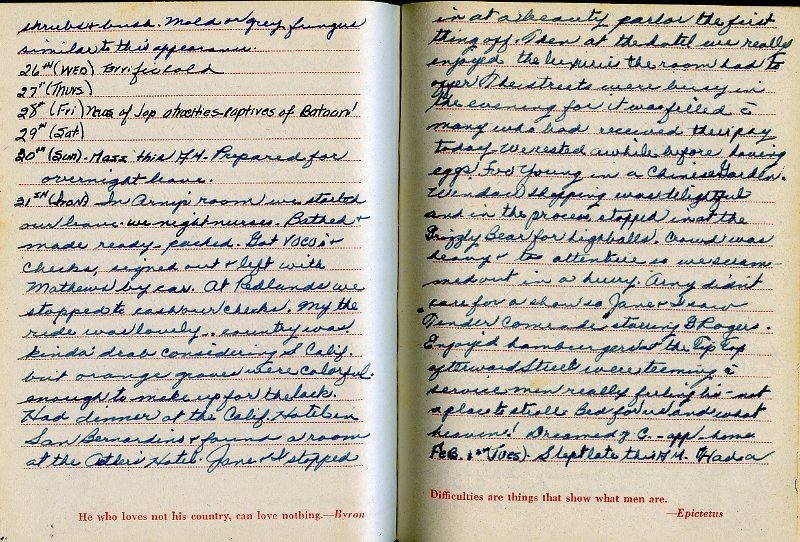 shrubs + bush. Mold or grey fungus
similar to this appearance.
26TH (WED) Terrific cold
27" (Thurs)
28" (Fri) News of Jap atrocities - captives of Bataan!
29TH (Sat)
30TH (Sun) - Mass this A.M. Prepared for
overnight leave.
31ST (Mon) - In Arny's room we started
our leave - we night nurses. Bathed +
made ready - packed. Got VOCO's +
checks, signed out + left with
Mathews by car. At Redlands we
stopped to cash our checks. My the
ride was lovely - country was
kinda drab considering S Calif.
but orange groves were colorful
enough to make up for the lack.
Had dinner at the Calif. Hotel in
San Bernardino + found a room
at the Hotel. Jane + I stopped
in at a beauty parlor the first
thing off. Then at the hotel we really
enjoyed the luxuries the room had to
offer. The streets were busy in
the evening for it was filled c̄
many who had received their pay
today. We rested awhile before having
egg Foo Young in a Chinese Garden.
Window shopping was delightful
and in the process stopped in at the
Grizzly Bear for highballs. Crowd was
heavy + too attentive so we scram-
med out in a hurry. Arny didn't
care for a show so Jane + I saw
Tender Comrade starring G Rogers.
Enjoyed hamburgers at the Tip Top
afterward. Streets were teeming c̄
service men really feeling hi - not
a place to stroll. Bed for us and what
heaven! Dreamed of C. - app home
FEB. 1ST (TUES) - Slept late this A.M. Had a
He who loves not his country, can love nothing.—Byron
Difficulties are things that show what men are.
—Epictetus